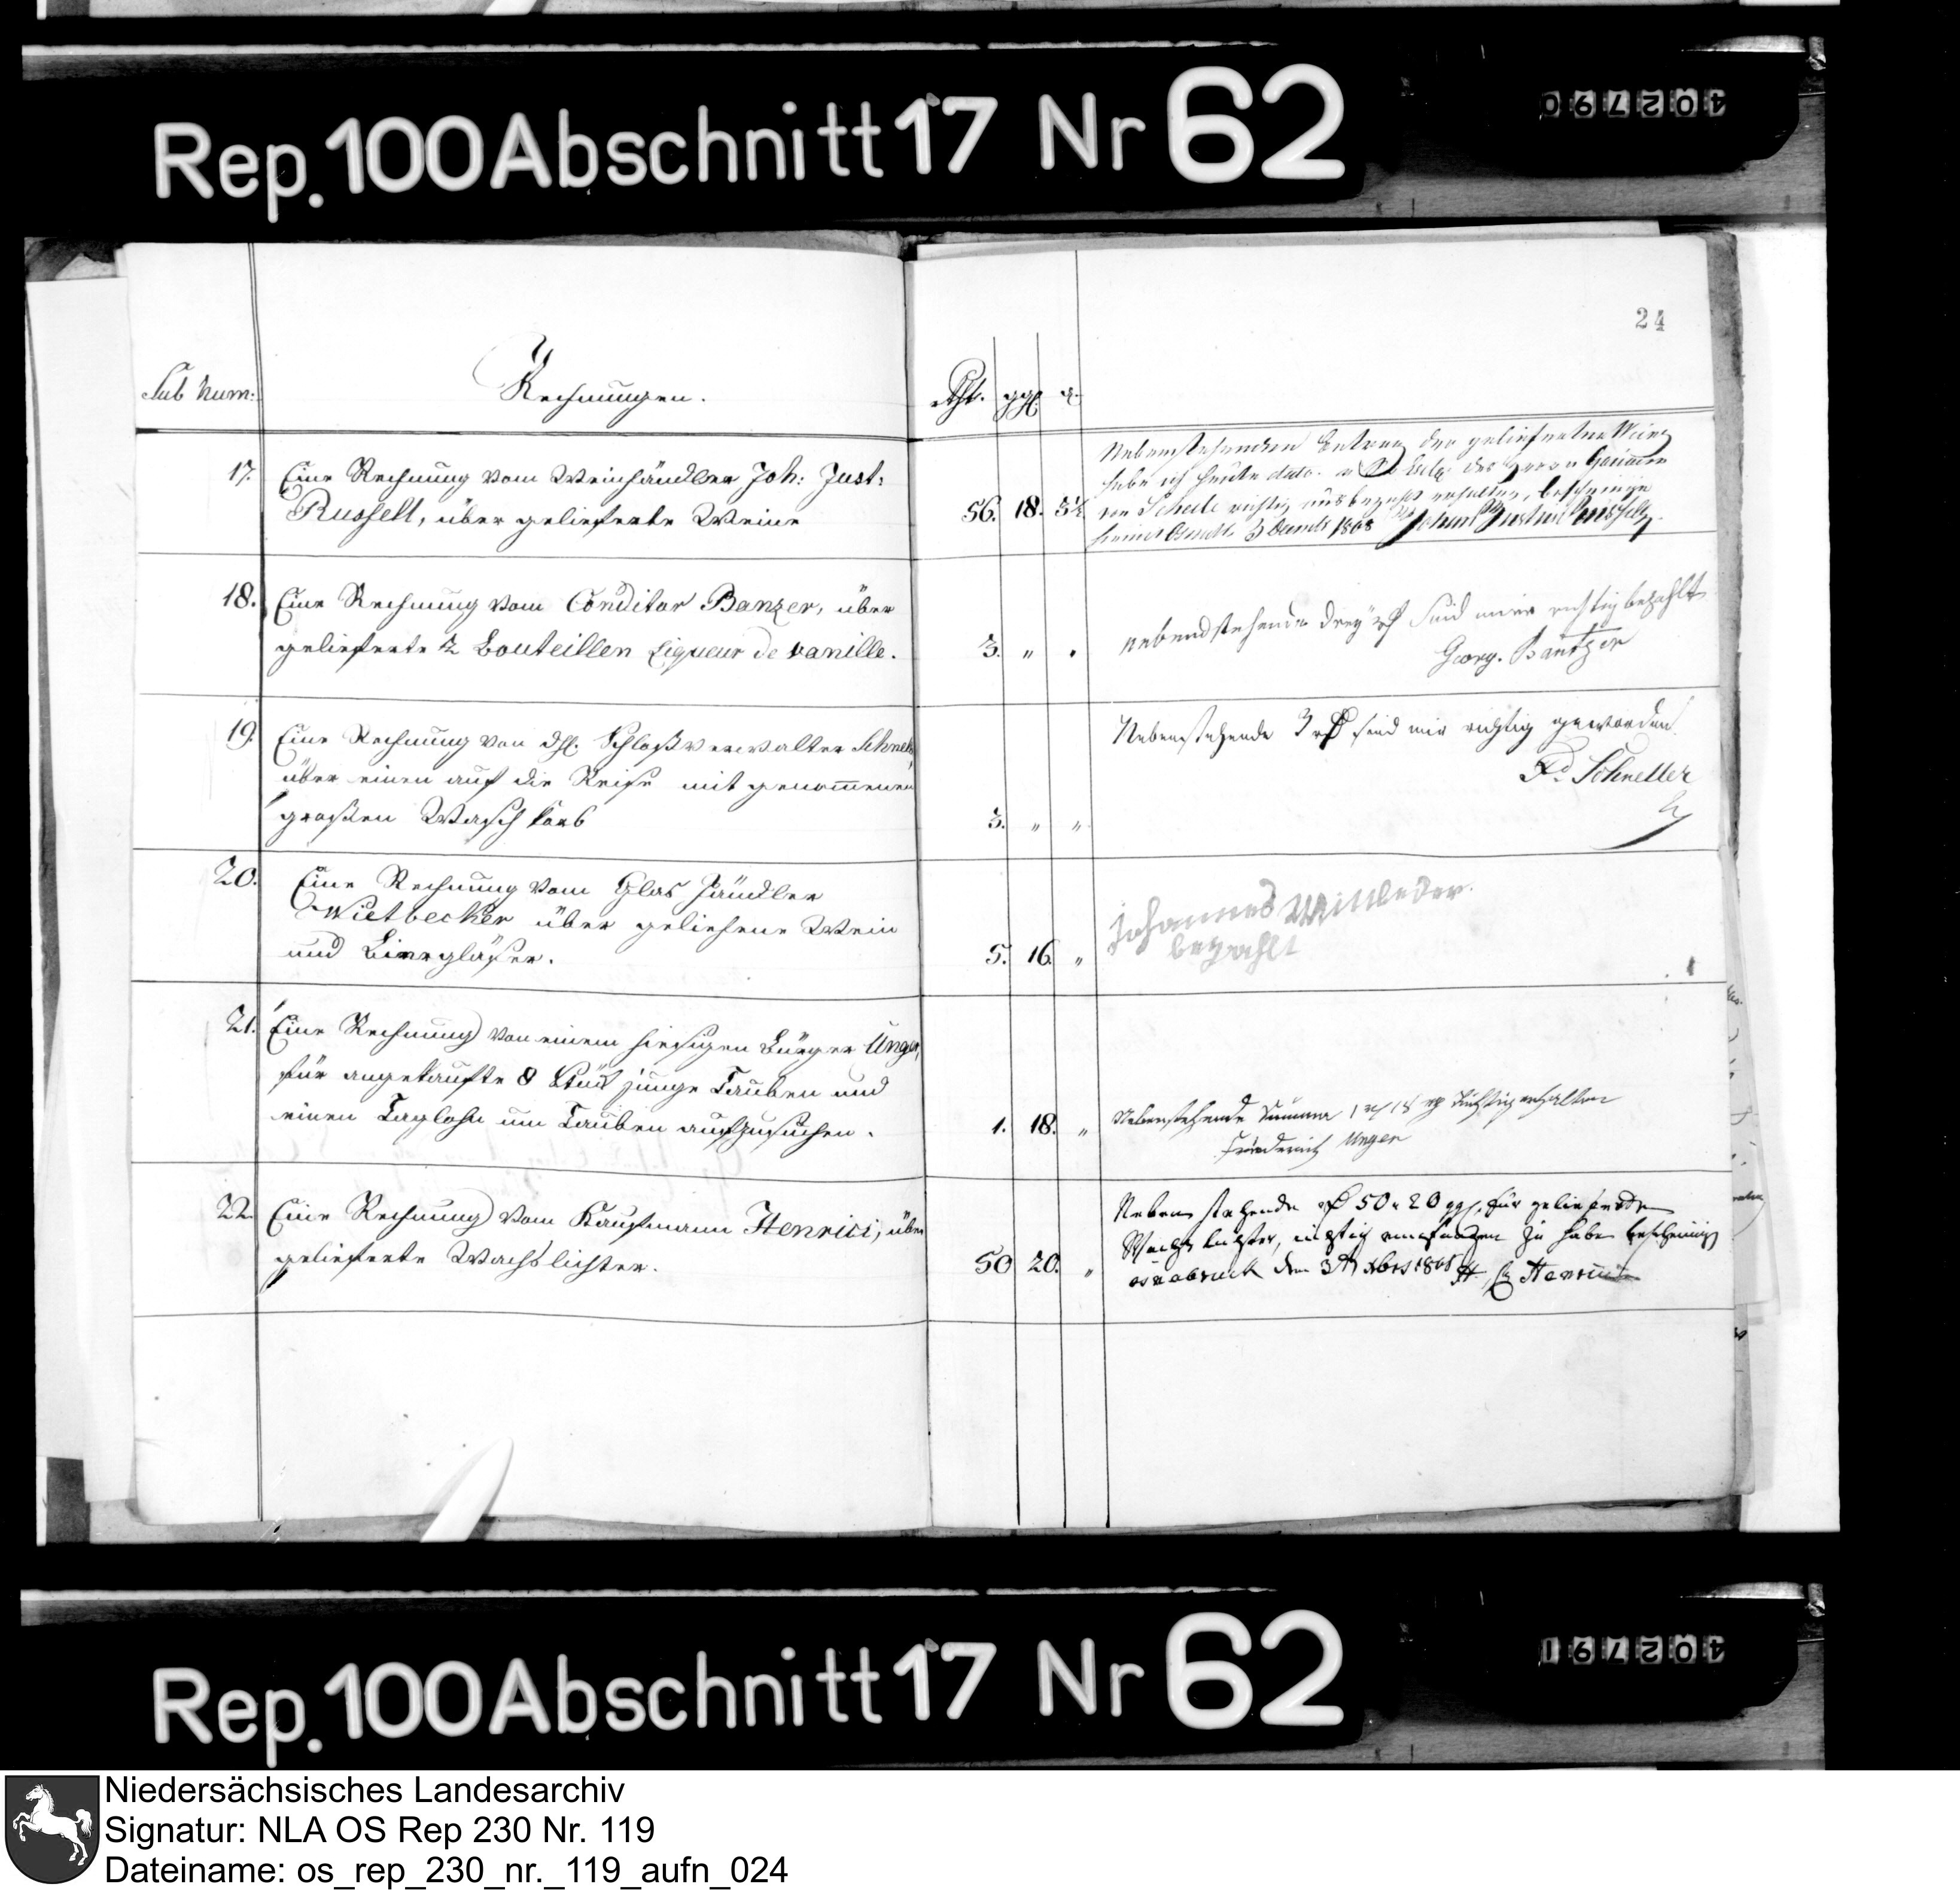 Rep. 100 Abschnitt 17 Nr 62
402790
24
Sub num: Rechnungen. Rthl. ggl. d.
17. Eine Rechnung vom Weinhändler Joh: Just:
Russell, über gelieferte Weine 56. 18. 5½
Nebenstehenden Betrag der gelieferten Weine
habe ich heute dato des Herrn
von Schele richtig ausbezahlt erhalten, bescheinige
hiemit Osnabr. 3 Decembr 1808 Johann Justus Russell
18. Eine Rechnung vom Conditor Banzer, über
gelieferte 2 Bouteillen Liqueur de vanille. 3. " .
nebendstehende drey rthl sind mir richtig bezahlt
Georg. Bantzer
19. Eine Rechnung von dHl. Schloßverwalter Schnell,
über einen auf die Reise mit genommenen
großen Waschkorb 3. " "
Nebenstehende 3 rthl sind mir richtig geworden.
Schneller
20. Eine Rechnung vom Glas händler
Wietbecker über geliehene Wein
und Biergläser. 5. 16. "
Johannes Wittleder.
bezahlt
21. Eine Rechnung von einem hiesigen Bürger Unger,
für angekaufte 8 Stück junge Tauben und
einen Taglohn um Tauben aufzusuchen. 1. 18. "
Nebenstehende Summa 1 rthl 18 gg Richtig erhalten
Friederich Unger
22. Eine Rechnung vom Kaufmann Henrici, über
gelieferte Wachslichter. 50 20. "
Neben stehende rthl 50 " 20 ggl. für gelieferte
Wachs lichter, richtig empfangen zu haben bescheinige
osnabruck den 3t Xbris 1808 Henrici
Rep. 100 Abschnitt 17 Nr 62
402791
Niedersächsisches Landesarchiv
Signatur: NLA OS Rep 230 Nr. 119
Dateiname: os_rep_230_nr._119_aufn_024